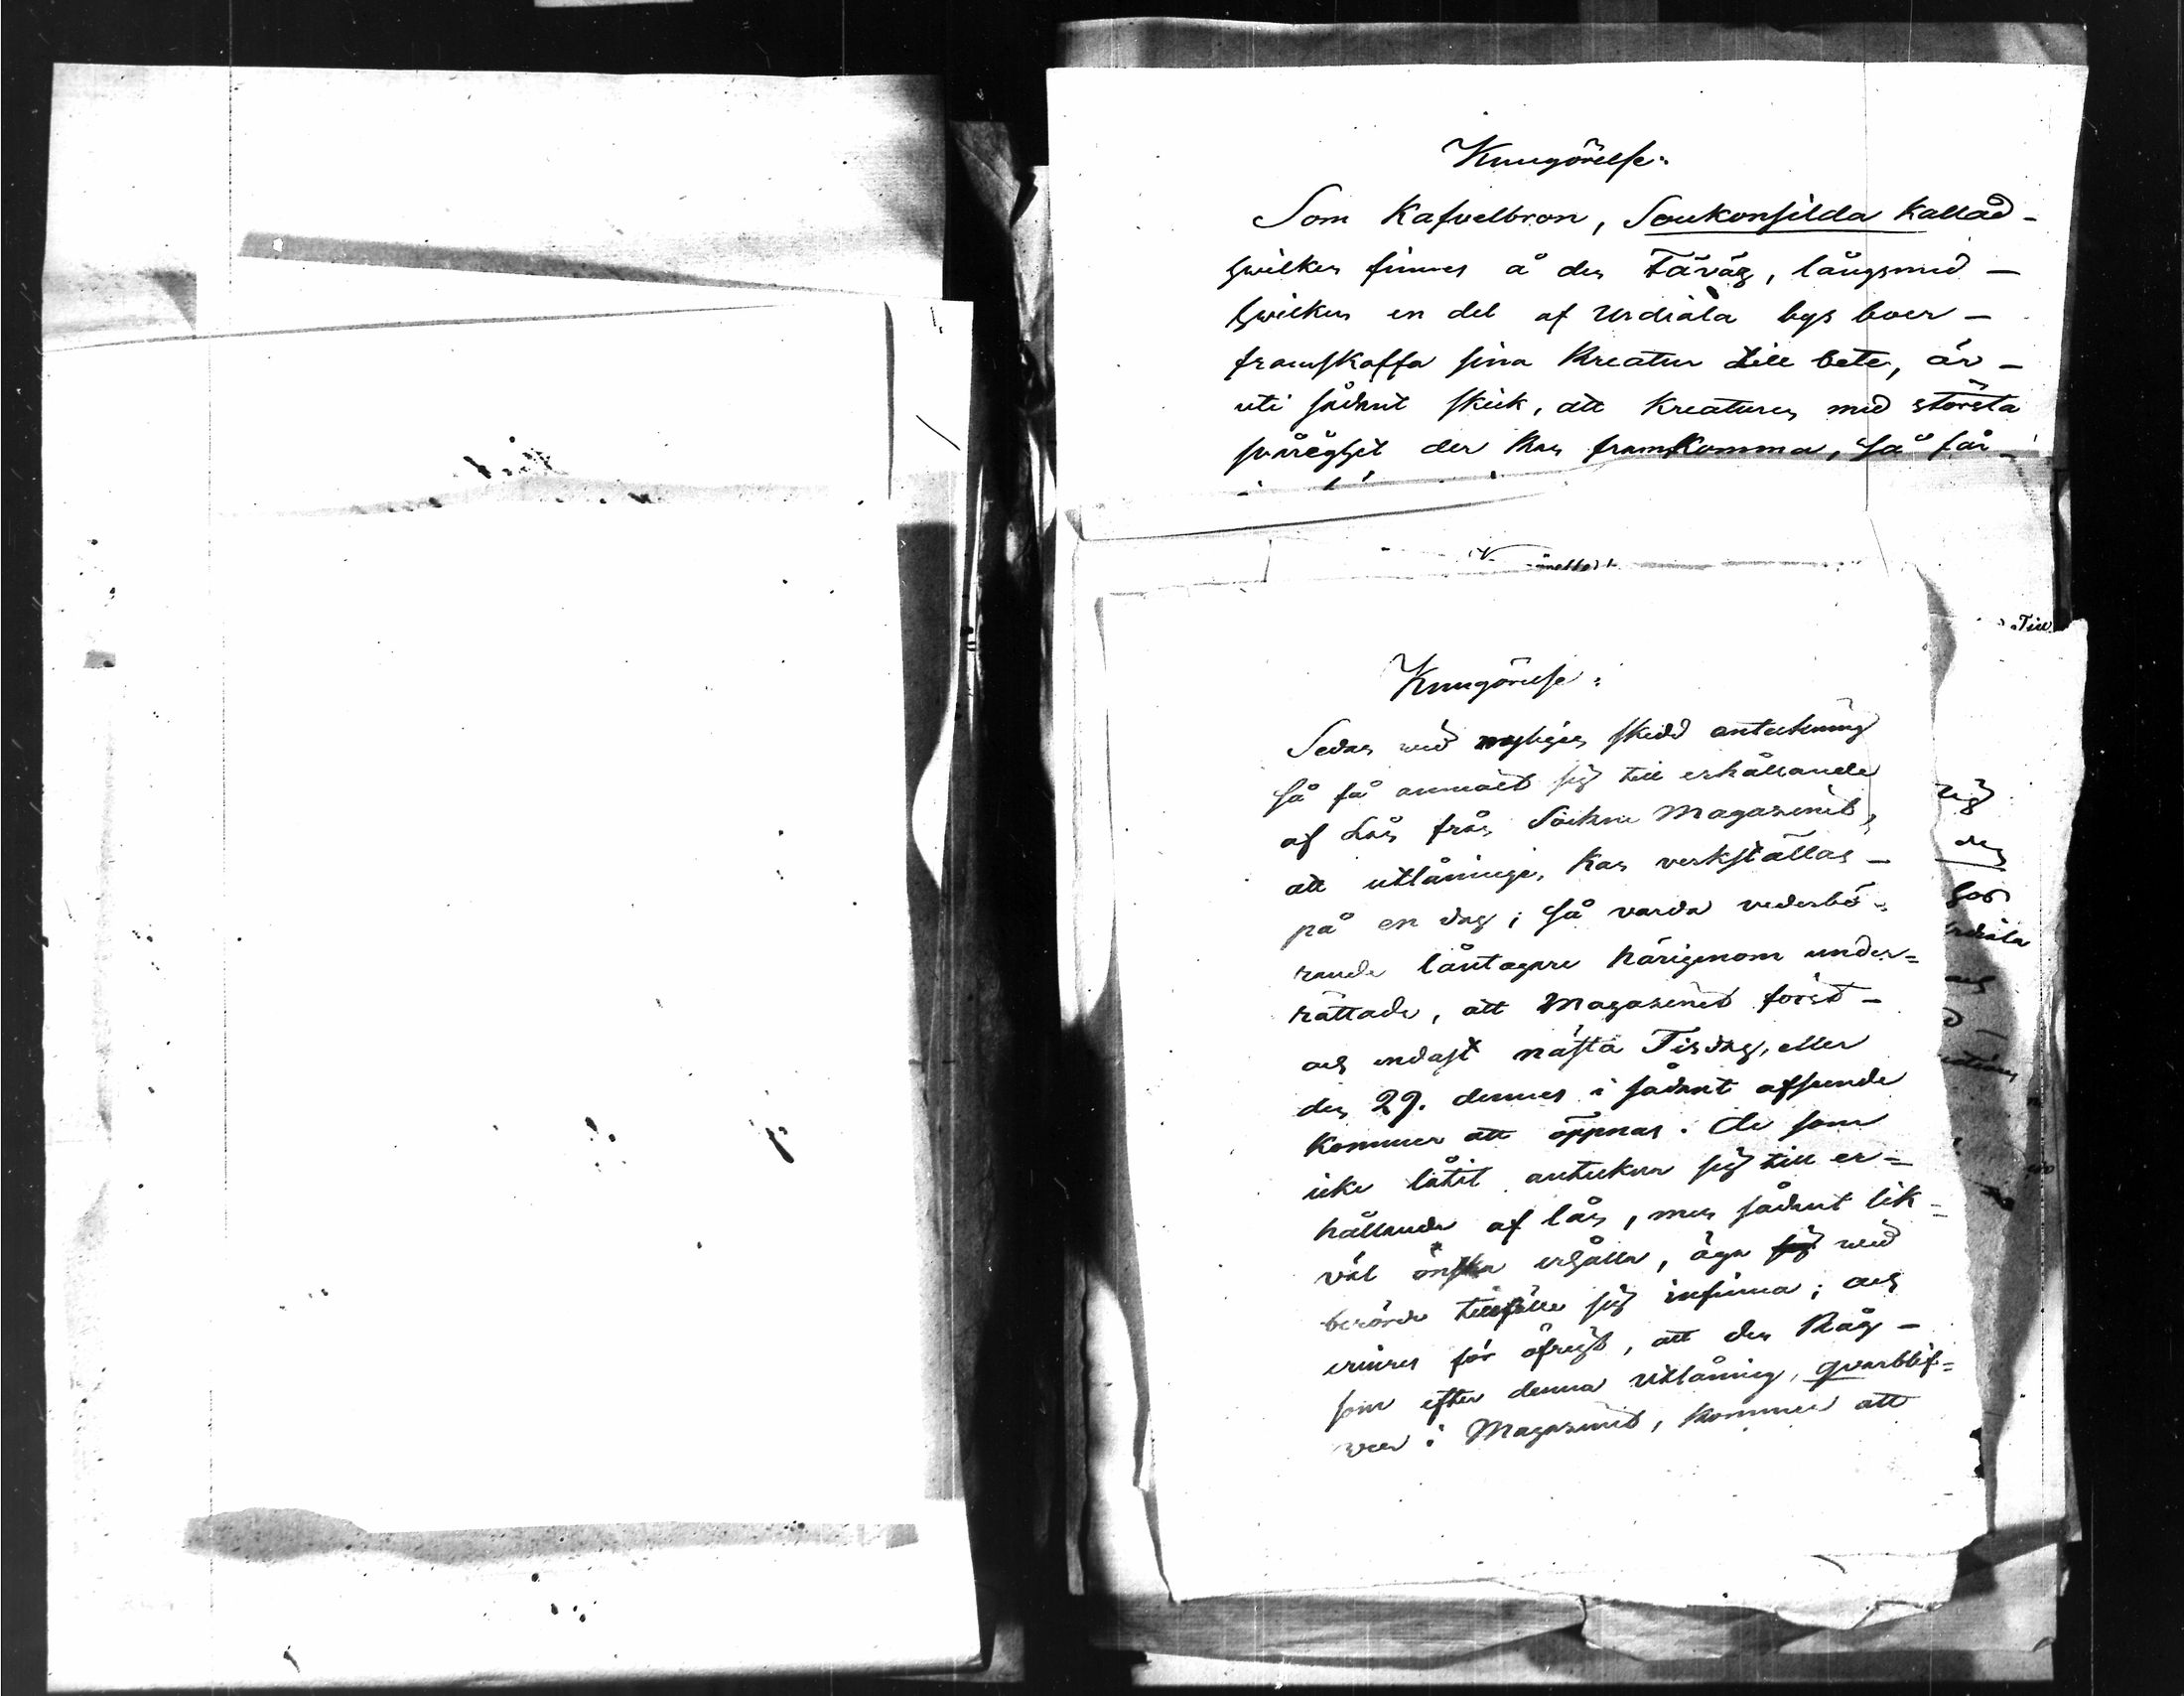 Kungörelse:
Som Kafvelbron, Soukonsilda kallad -
hvilken finnes å den Fäväg, längsmed -
hvilken en del af Urdiala bys boer -
framskaffa sina Kreatur till bete, är -
uti sådant skick, att Kreaturen med största
svårighet der kan framkomma, så får -
Till
Kungörelse:
Sedan vid nyligen skedd anteckning
så få anmält sig till erhållande
af Lån från Sockne Magasinet,
att utlåningen kan verkställas -
på en dag; så varda vederbö=
rande låntagare härigenom under=
rättade, att Magasinet först -
och endast nästa Tisdag, eller
den 29. dennes i sådant afseende
kommer att öppnas. De som
icke låtit anteckna sig till er=
hållande af lån, men sådant lik=
väl önska erhålla, äga vid
berörde tillfälle sig infinna; och
erinras för öfrigt, att den Råg -
som efter denna utlåning, qvarblif=
ver i Magasinet, kommer att
den
hos
rdiala
och